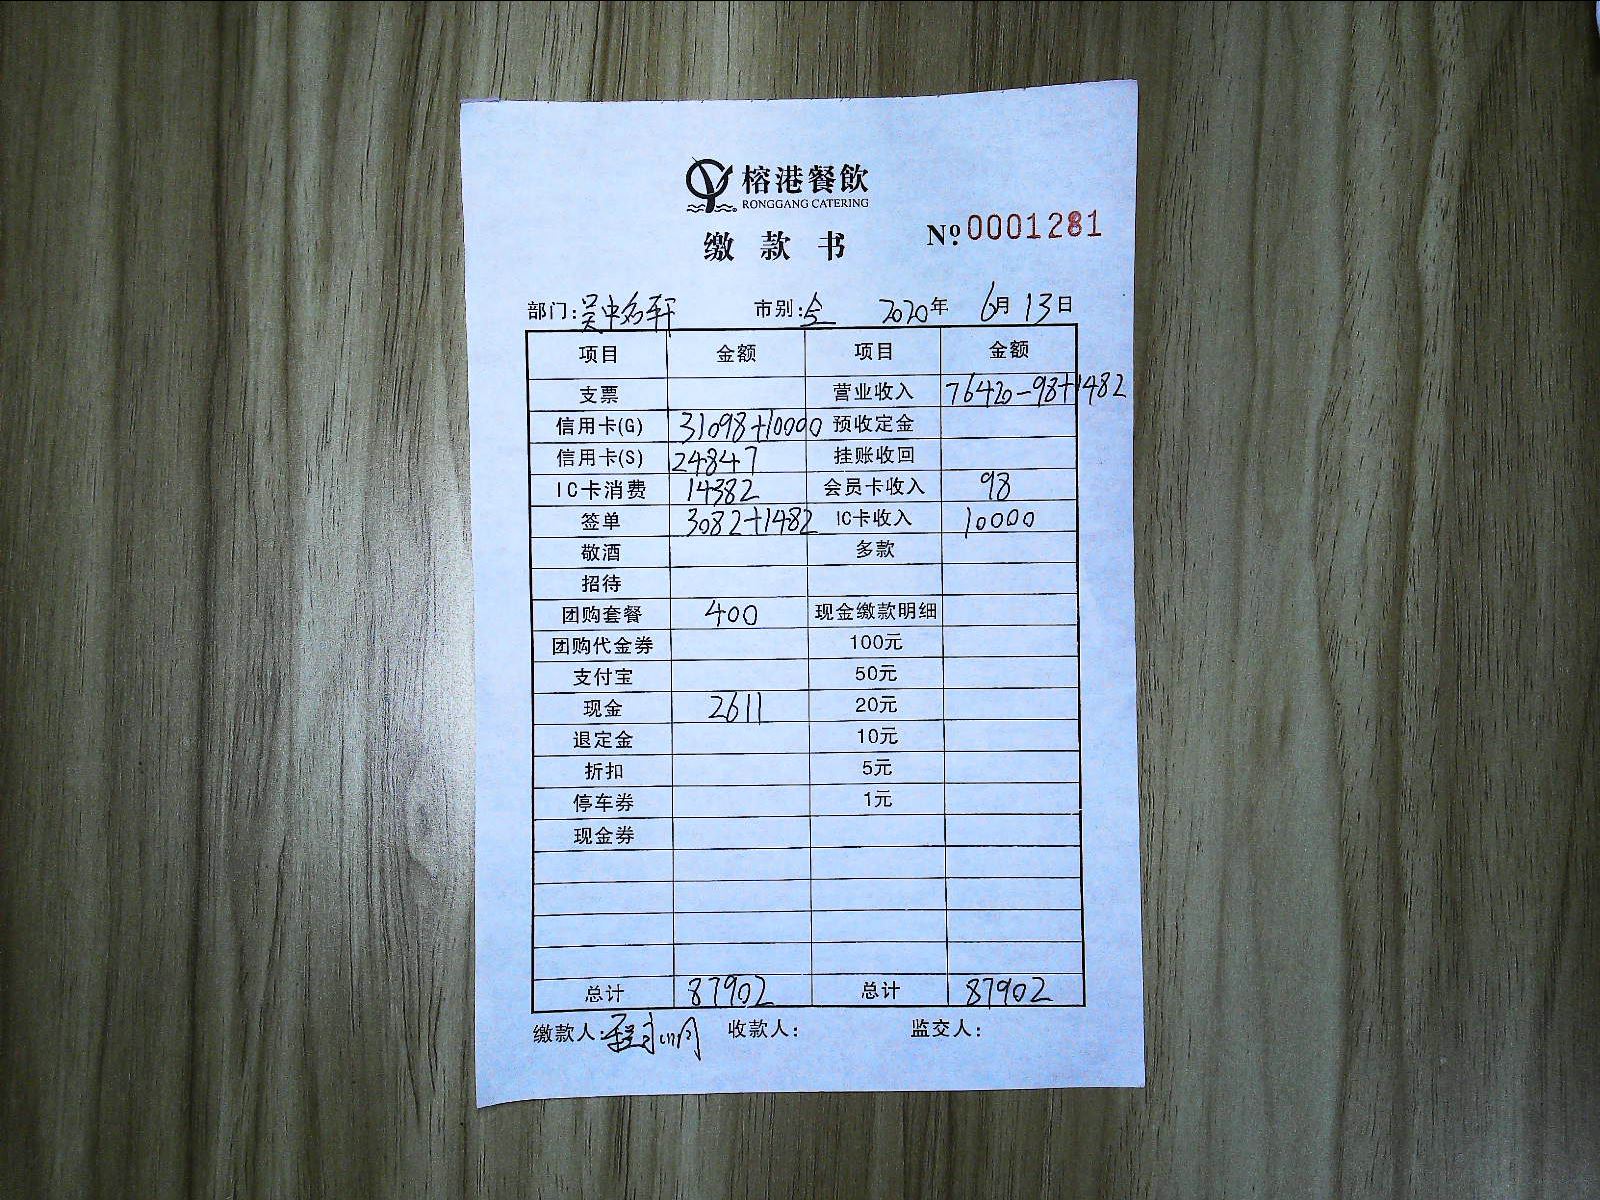 榕港餐飲
RONGGANG CATERING
缴款书
№0001281
部门:吴中名轩 市别:全 2020年 6月13日
项目 金额 项目 金额
支票 营业收入 76420-98+1482
信用卡(G) 31098+10000 预收定金
信用卡(S) 24847 挂账收回
IC卡消费 14382 会员卡收入 98
签单 3082+1482 IC卡收入 10000
敬酒 多款
招待
团购套餐 400 现金缴款明细
团购代金券 100元
支付宝 50元
现金 2611 20元
退定金 10元
折扣 5元
停车券 1元
现金券
总计 87902 总计 87902
缴款人: 收款人: 监交人: